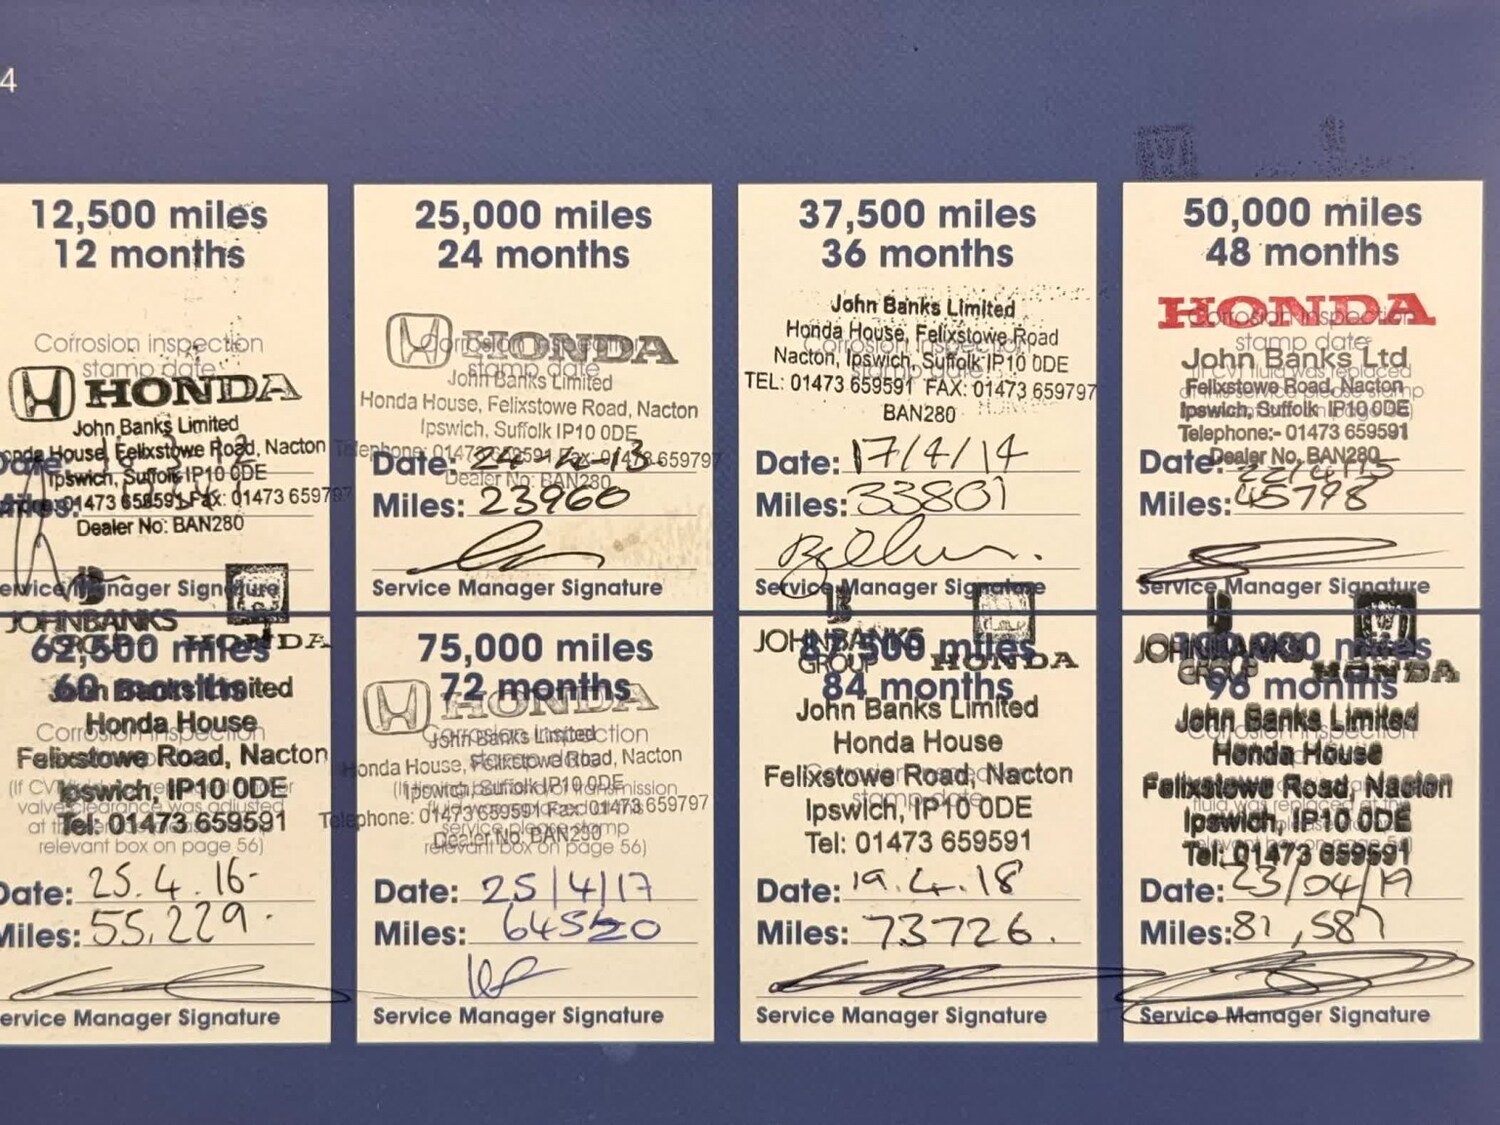 4
12,500 miles
12 months
Corrosion inspection
stamp date
HONDA
John Banks Limited
House, Felixstowe Road, Nacton
Ipswich, Suffolk IP10 0DE
01473 659591 Fax: 01473 659797
Dealer No: BAN280
Date:
Miles:
Service Manager Signature
25,000 miles
24 months
Corrosion inspection
stamp date
HONDA
John Banks Limited
Honda House, Felixstowe Road, Nacton
Ipswich, Suffolk IP10 0DE
Telephone: 01473 659591 Fax: 01473 659797
Dealer No: BAN280
Date: 24-4-13
Miles: 23960
Service Manager Signature
37,500 miles
36 months
John Banks Limited
Honda House, Felixstowe Road
Nacton, Ipswich, Suffolk IP10 0DE
TEL: 01473 659591 FAX: 01473 659797
BAN280
Date: 17/4/14
Miles: 33801
Service Manager Signature
50,000 miles
48 months
HONDA
Corrosion inspection
stamp date
John Banks Ltd
Felixstowe Road, Nacton
Ipswich, Suffolk IP10 0DE
Telephone:- 01473 659591
Dealer No. BAN280
Date: 22/4/15
Miles: 45798
Service Manager Signature
JOHN BANKS
GROUP HONDA
62,500 miles
60 months
John Banks Limited
Honda House
Corrosion inspection
Felixstowe Road, Nacton
Ipswich, IP10 0DE
valve clearance was adjusted
Tel: 01473 659591
relevant box on page 56)
Date: 25.4.16-
Miles: 55,229.
Service Manager Signature
75,000 miles
72 months
HONDA
Corrosion inspection
stamp date
John Banks Limited
Honda House, Felixstowe Road, Nacton
Ipswich, Suffolk IP10 0DE
Telephone: 01473 659591 Fax: 01473 659797
service please stamp
Dealer No: BAN280
relevant box on page 56)
Date: 25/4/17
Miles:
Service Manager Signature
JOHN BANKS
GROUP HONDA
87,500 miles
84 months
John Banks Limited
Honda House
Felixstowe Road, Nacton
stamp date
Ipswich, IP10 0DE
Tel: 01473 659591
Date: 19.4.18
Miles: 73726.
Service Manager Signature
JOHN BANKS
GROUP HONDA
100,000 miles
96 months
John Banks Limited
Corrosion inspection
Honda House
Felixstowe Road, Nacton
Ipswich, IP10 0DE
Tel: 01473 659591
Date: 23/04/19
Miles: 81,587
Service Manager Signature